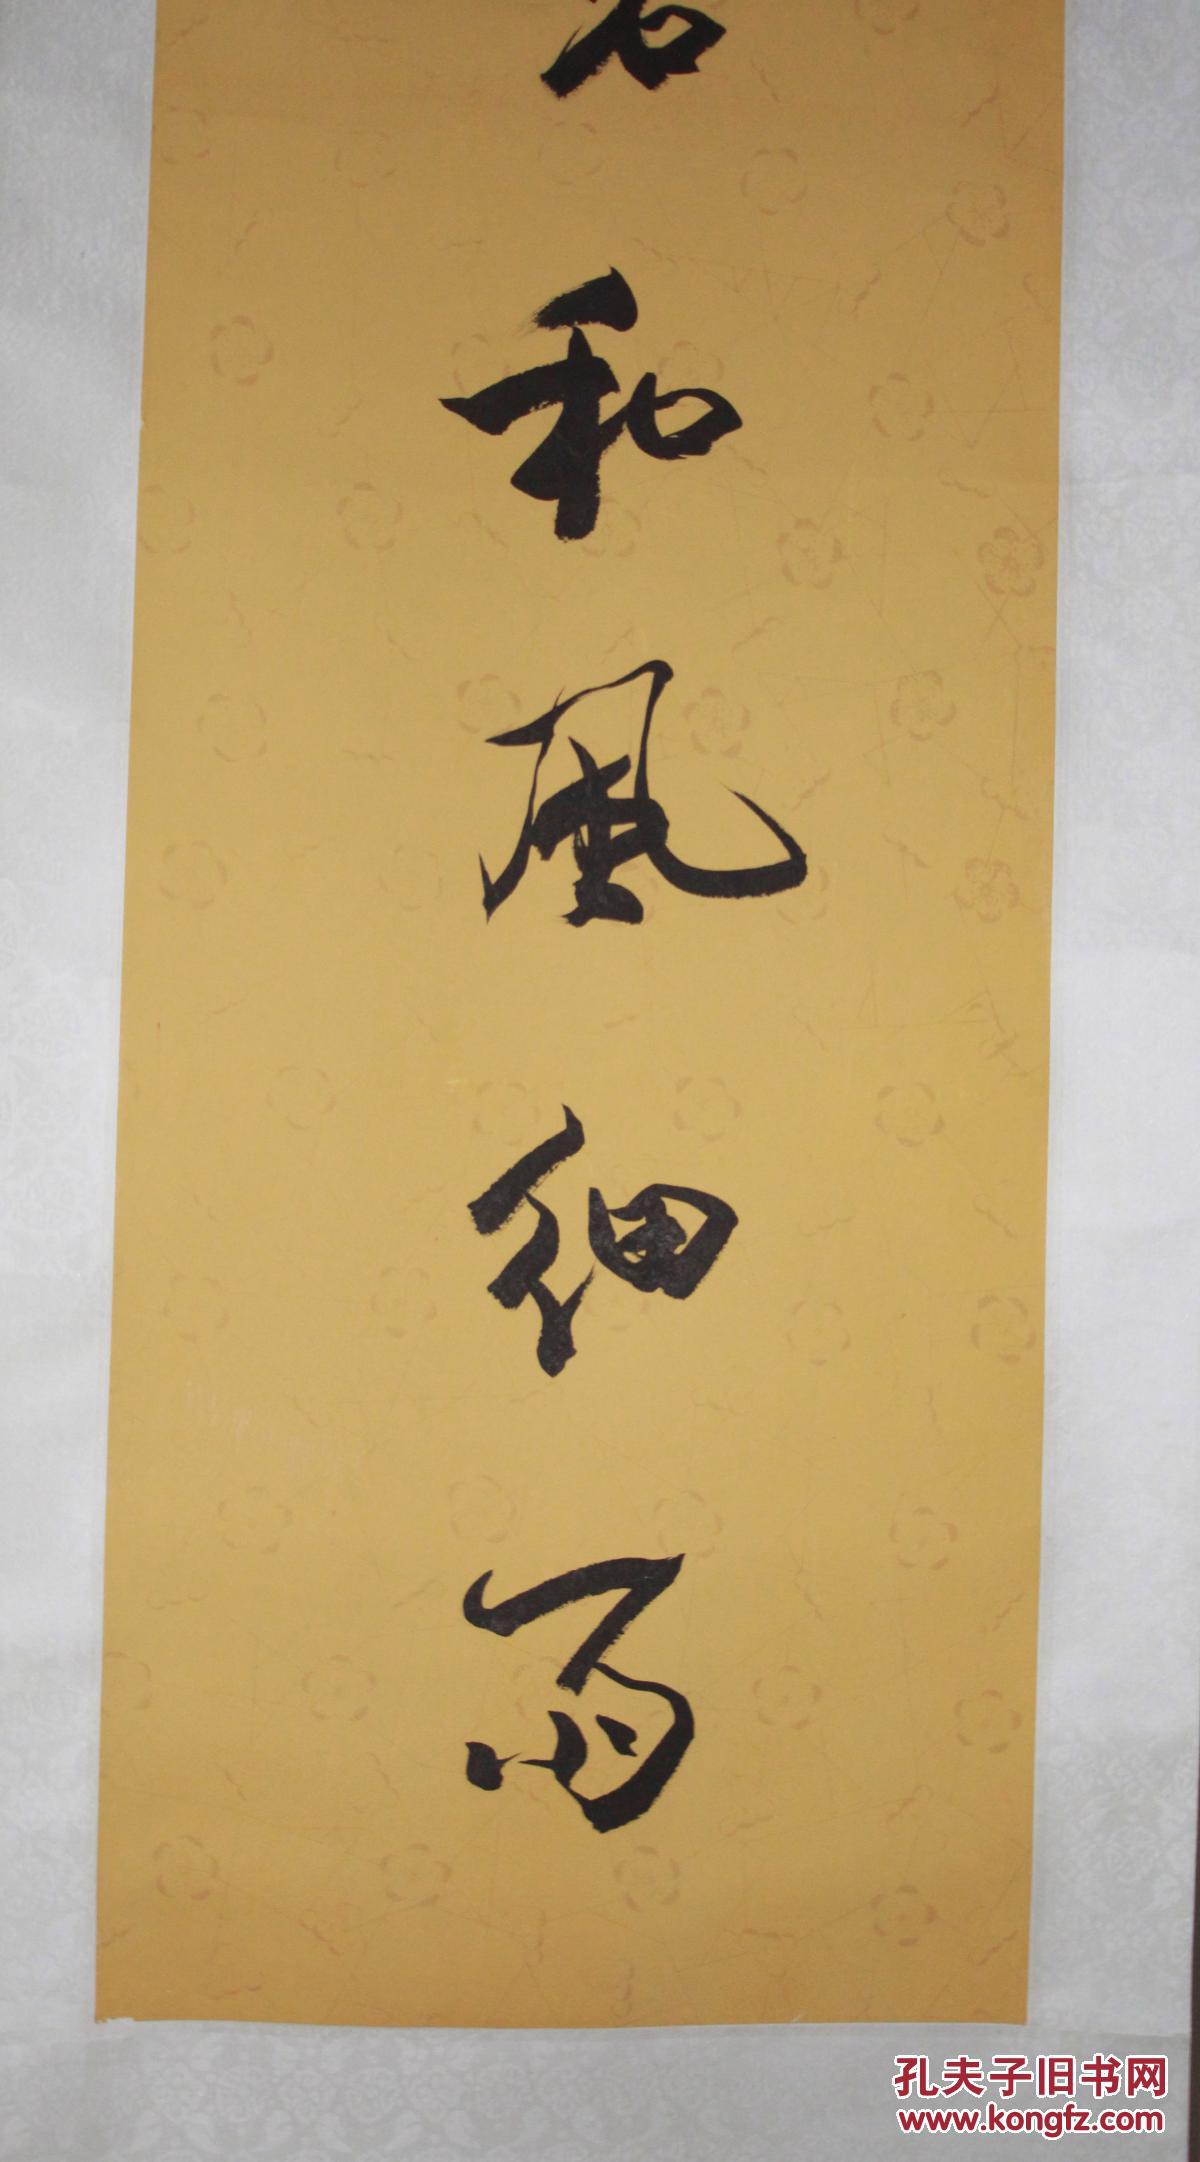 和風細雨
孔夫子旧书网
www.kongfz.com